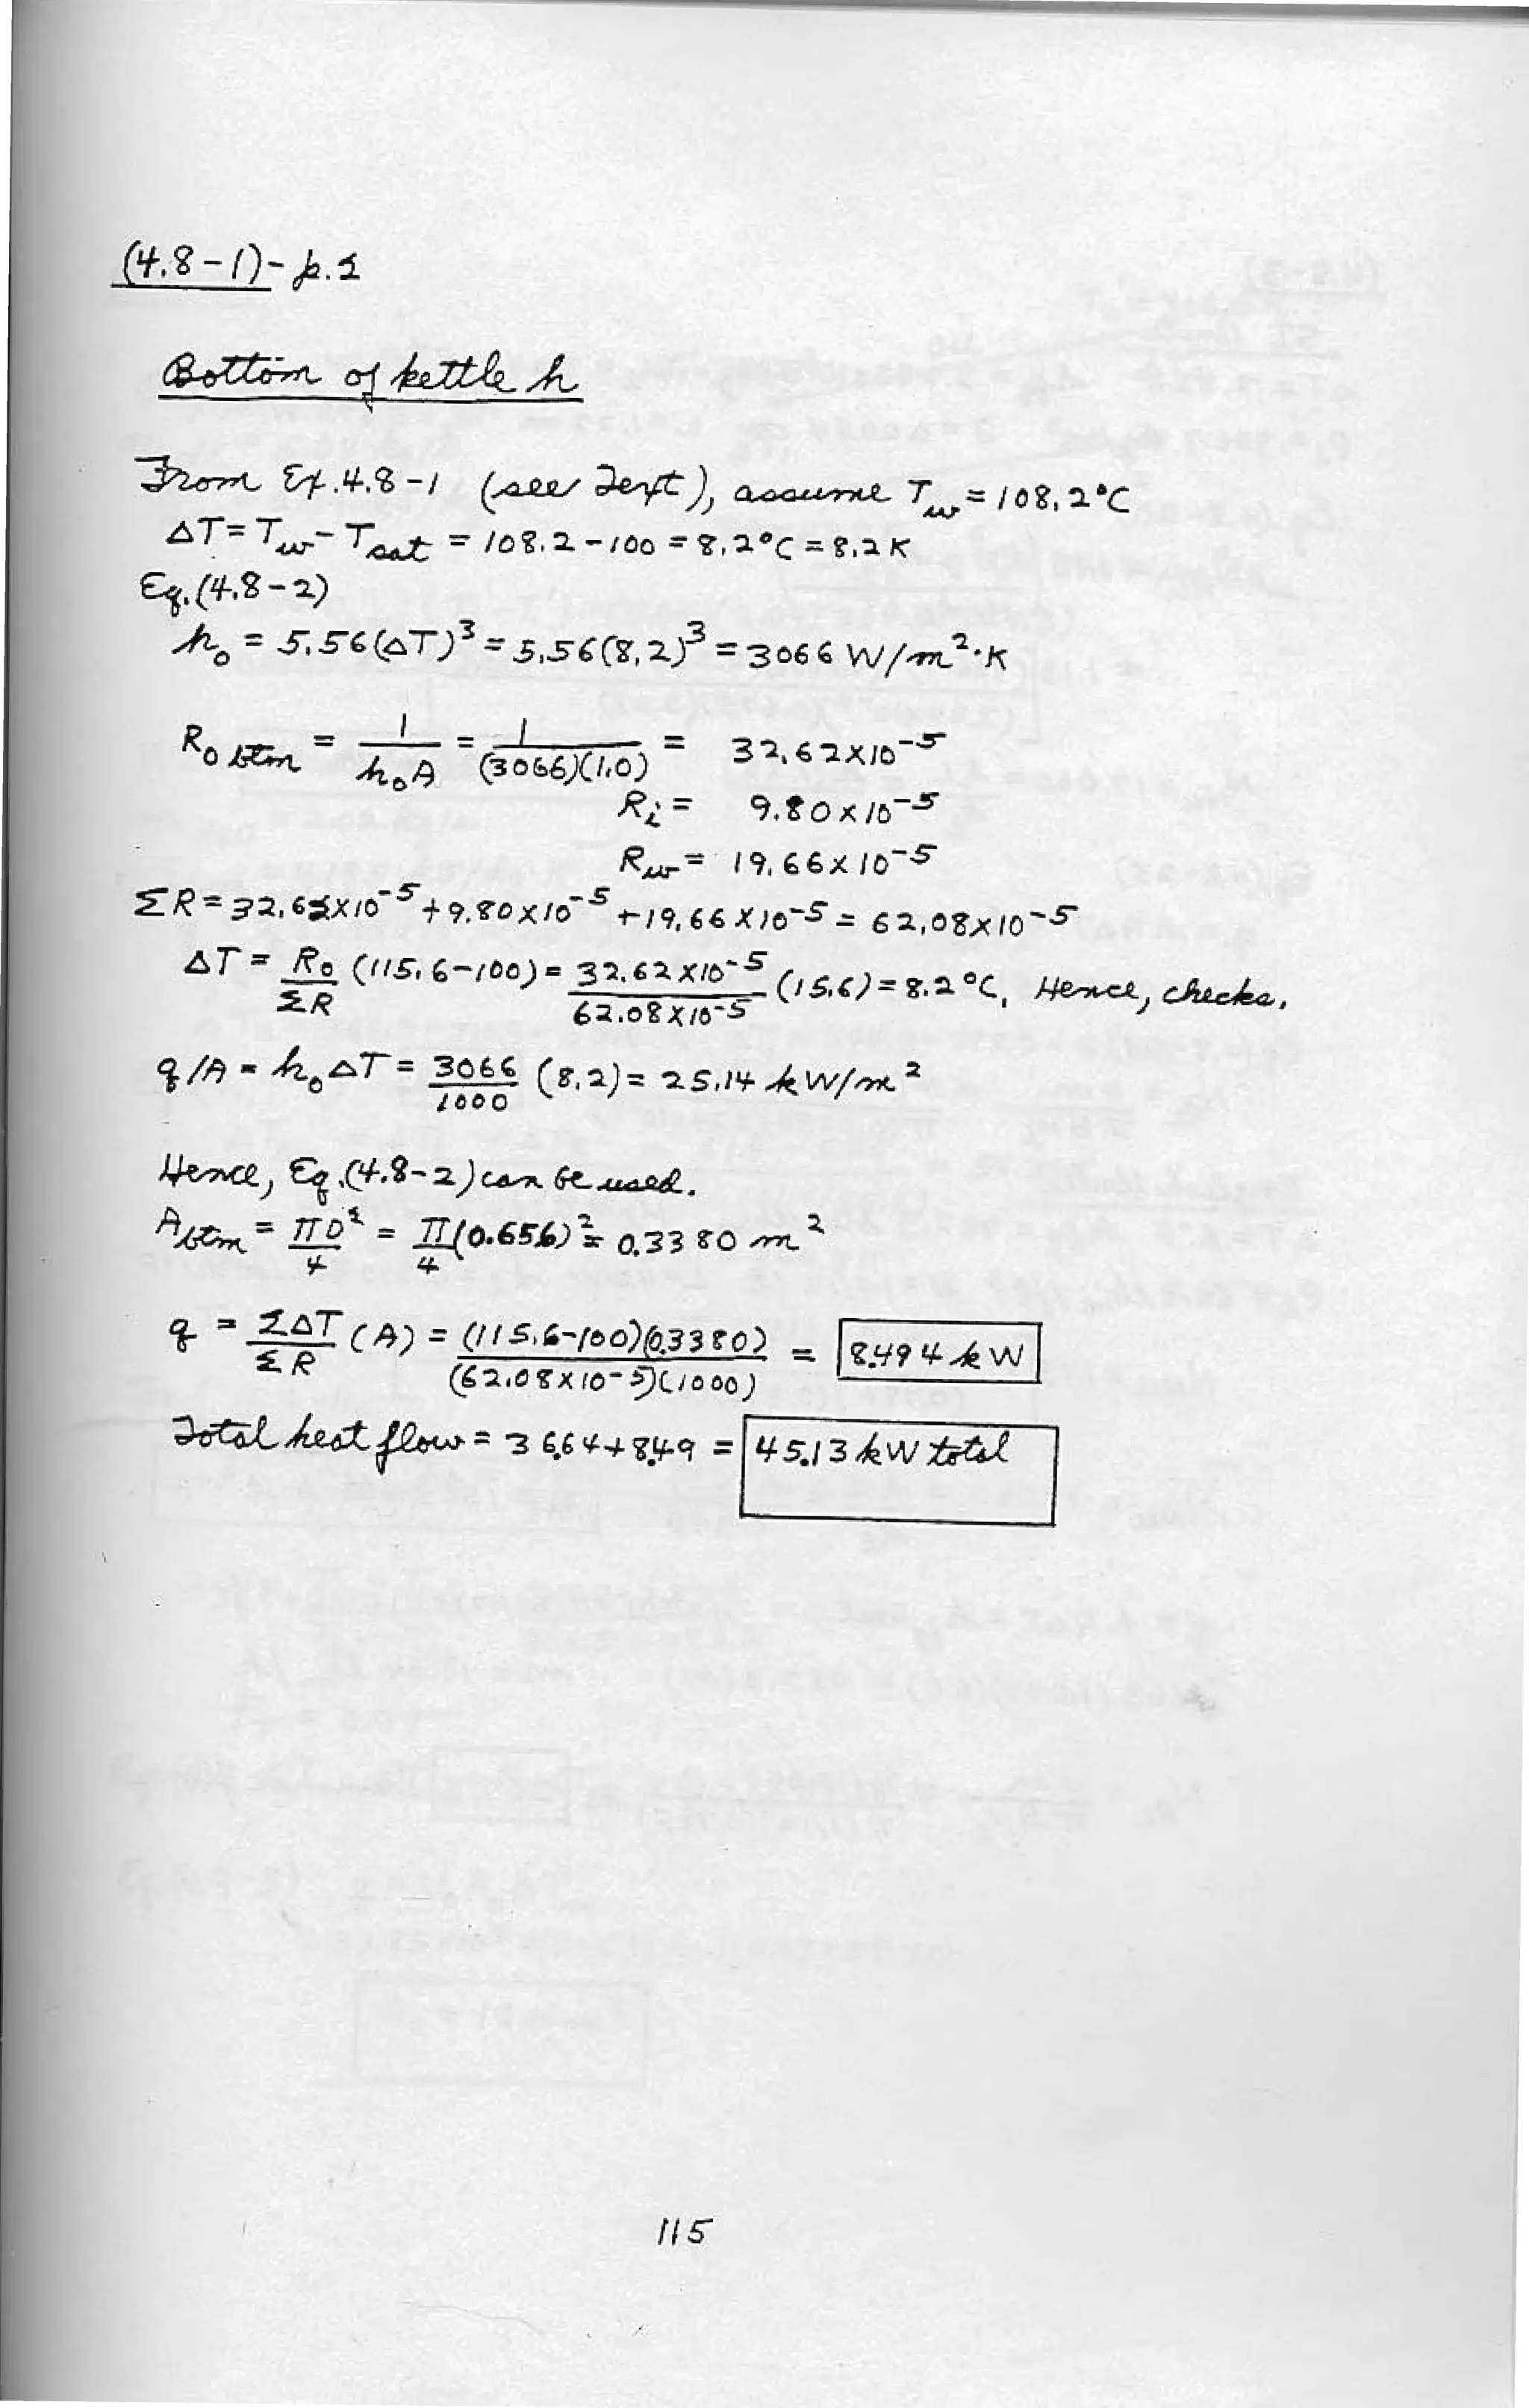 (4.8-1)-p.2
Bottom of kettle h
From Ex.4.8-1 (see Text), assume T_w = 108.2°C
ΔT = T_w - T_sat = 108.2 - 100 = 8.2°C = 8.2 K
Eq.(4.8-2)
h_o = 5.56(ΔT)^3 = 5.56(8.2)^3 = 3066 W/m^2·K
R_o btm = 1/(h_o A) = 1/((3066)(1.0)) = 32.62×10^-5
R_i = 9.80×10^-5
R_w = 19.66×10^-5
ΣR = 32.62×10^-5 + 9.80×10^-5 + 19.66×10^-5 = 62.08×10^-5
ΔT = R_o/ΣR (115.6-100) = 32.62×10^-5/62.08×10^-5 (15.6) = 8.2°C, Hence, checks.
q/A = h_o ΔT = 3066/1000 (8.2) = 25.14 kW/m^2
Hence, Eq.(4.8-2) can be used.
A_btm = πD^2/4 = π/4 (0.656)^2 = 0.3380 m^2
q = ΣΔT/ΣR (A) = (115.6-100)(0.3380)/((62.08×10^-5)(1000)) = 8.494 kW
Total heat flow = 36.64 + 8.49 = 45.13 kW total
115